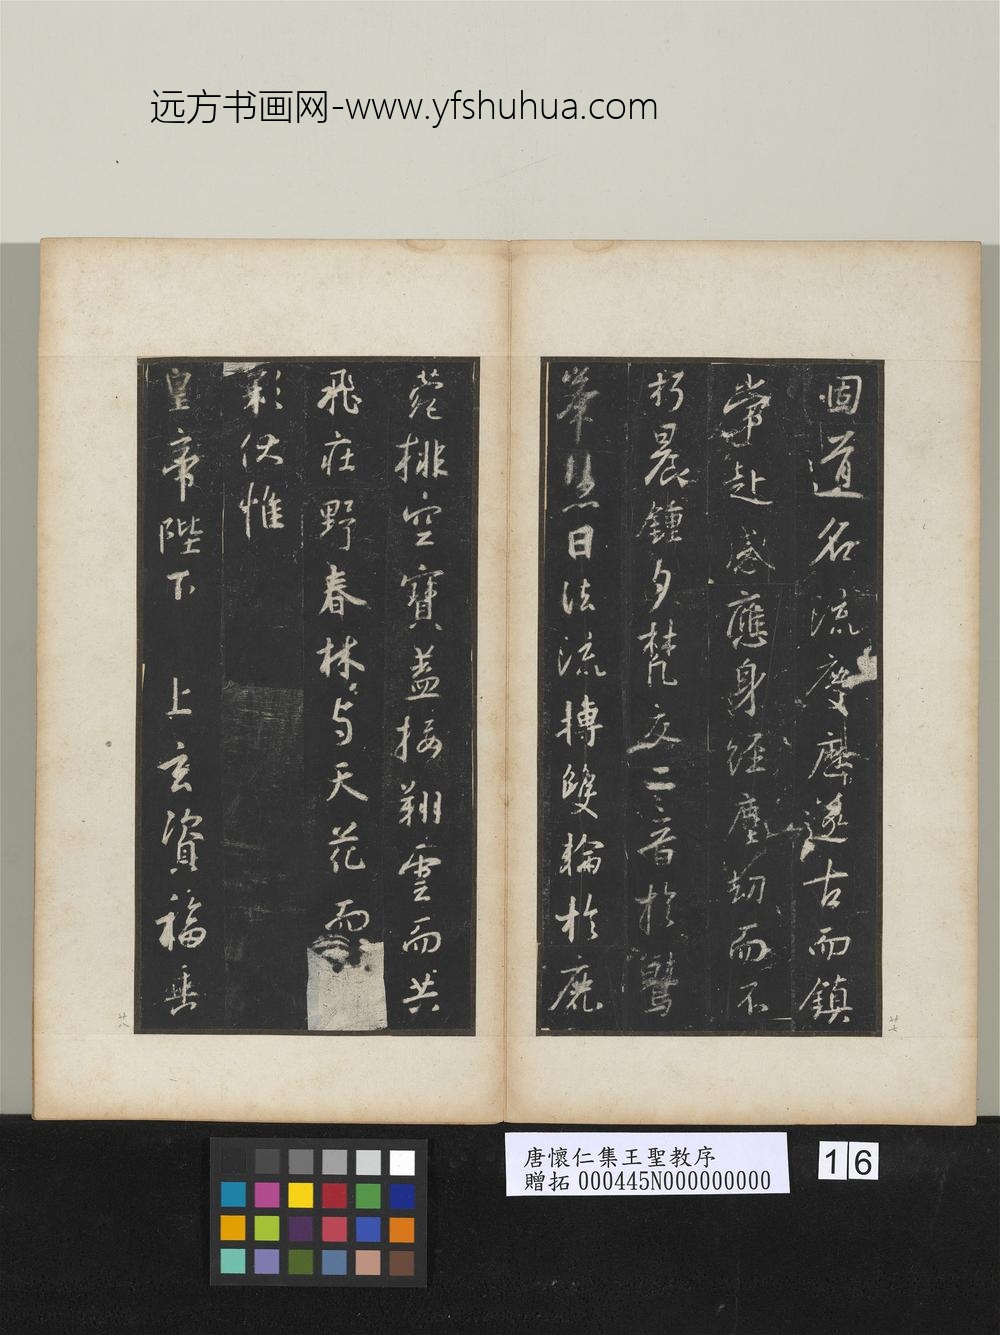 远方书画网-www.yfshuhua.com
固道名流慶歷遂古而鎮
常赴感應身經塵劫而不
朽晨鍾夕梵交二音於鷲
峯慧日法流轉雙輪於鹿
廿七
菀排空寶蓋接翔雲而共
飛莊野春林与天花而
彩伏惟
皇帝陛下 上玄資福垂
廿八
唐懷仁集王聖教序
贈拓 000445N000000000
16